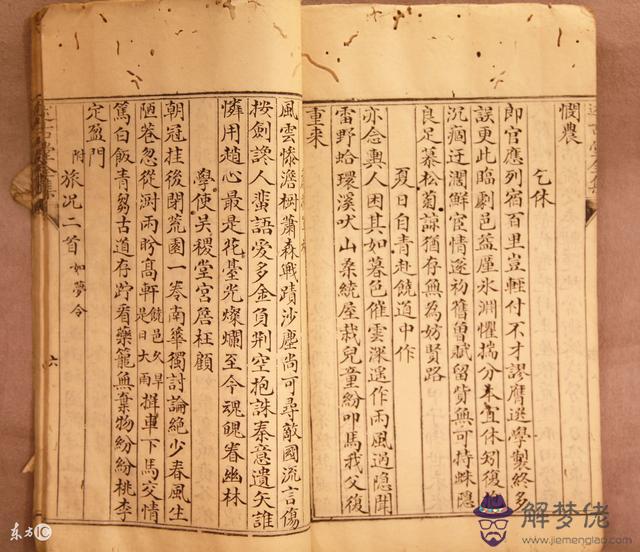 憫農
乞休
郎官應列宿百里豈輕付不才謬膺選學製終多
誤更此臨劇邑益厪氷淵懼揣分本宜休矧復抱
沉痼迂濶鮮宦情遂初舊曾賦留貲無可持蛛隠
良足慕松菊諒猶存無為妨賢路
夏日自青赴饒道中作
亦念輿人困其如暮色催雲深遙作雨風過隠聞
雷野蛤環溪吠山桑統屋栽兒童紛叩馬我父復
重来
風雲慘澹樹蕭森戰蹟沙塵尚可尋敵國流言傷
按劍讒人蜚語愛多金負荆空抱誅秦意遺矢誰
憐用趙心最是花臺光燦爛至今魂魄眷幽林
學使吴稷堂宫詹枉顧
朝冠挂後閉荒園一卷南華獨討論絶少春風生
陋巷忽從澍雨盼髙軒饒邑久旱是日大雨擁車下馬交情
篤白飯青芻古道存貯看藥籠無棄物紛紛桃李
定盈門
附旅况二首如夢令
六
东方IC
解梦佬
www.jiemenglao.com